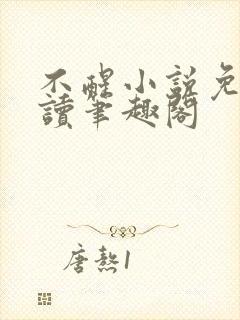 不醒小說免
讀筆趣閣
唐熬1